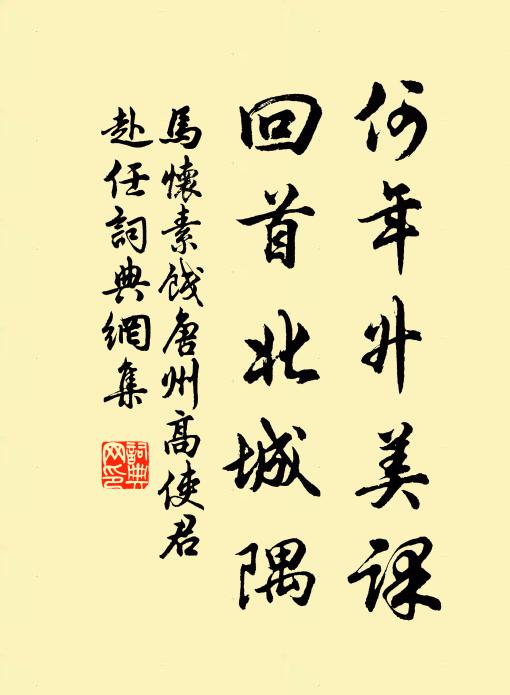 何年升美課
回首北城隅
馬懷素餞唐州高使君
赴任詞典網集
詞典
网印